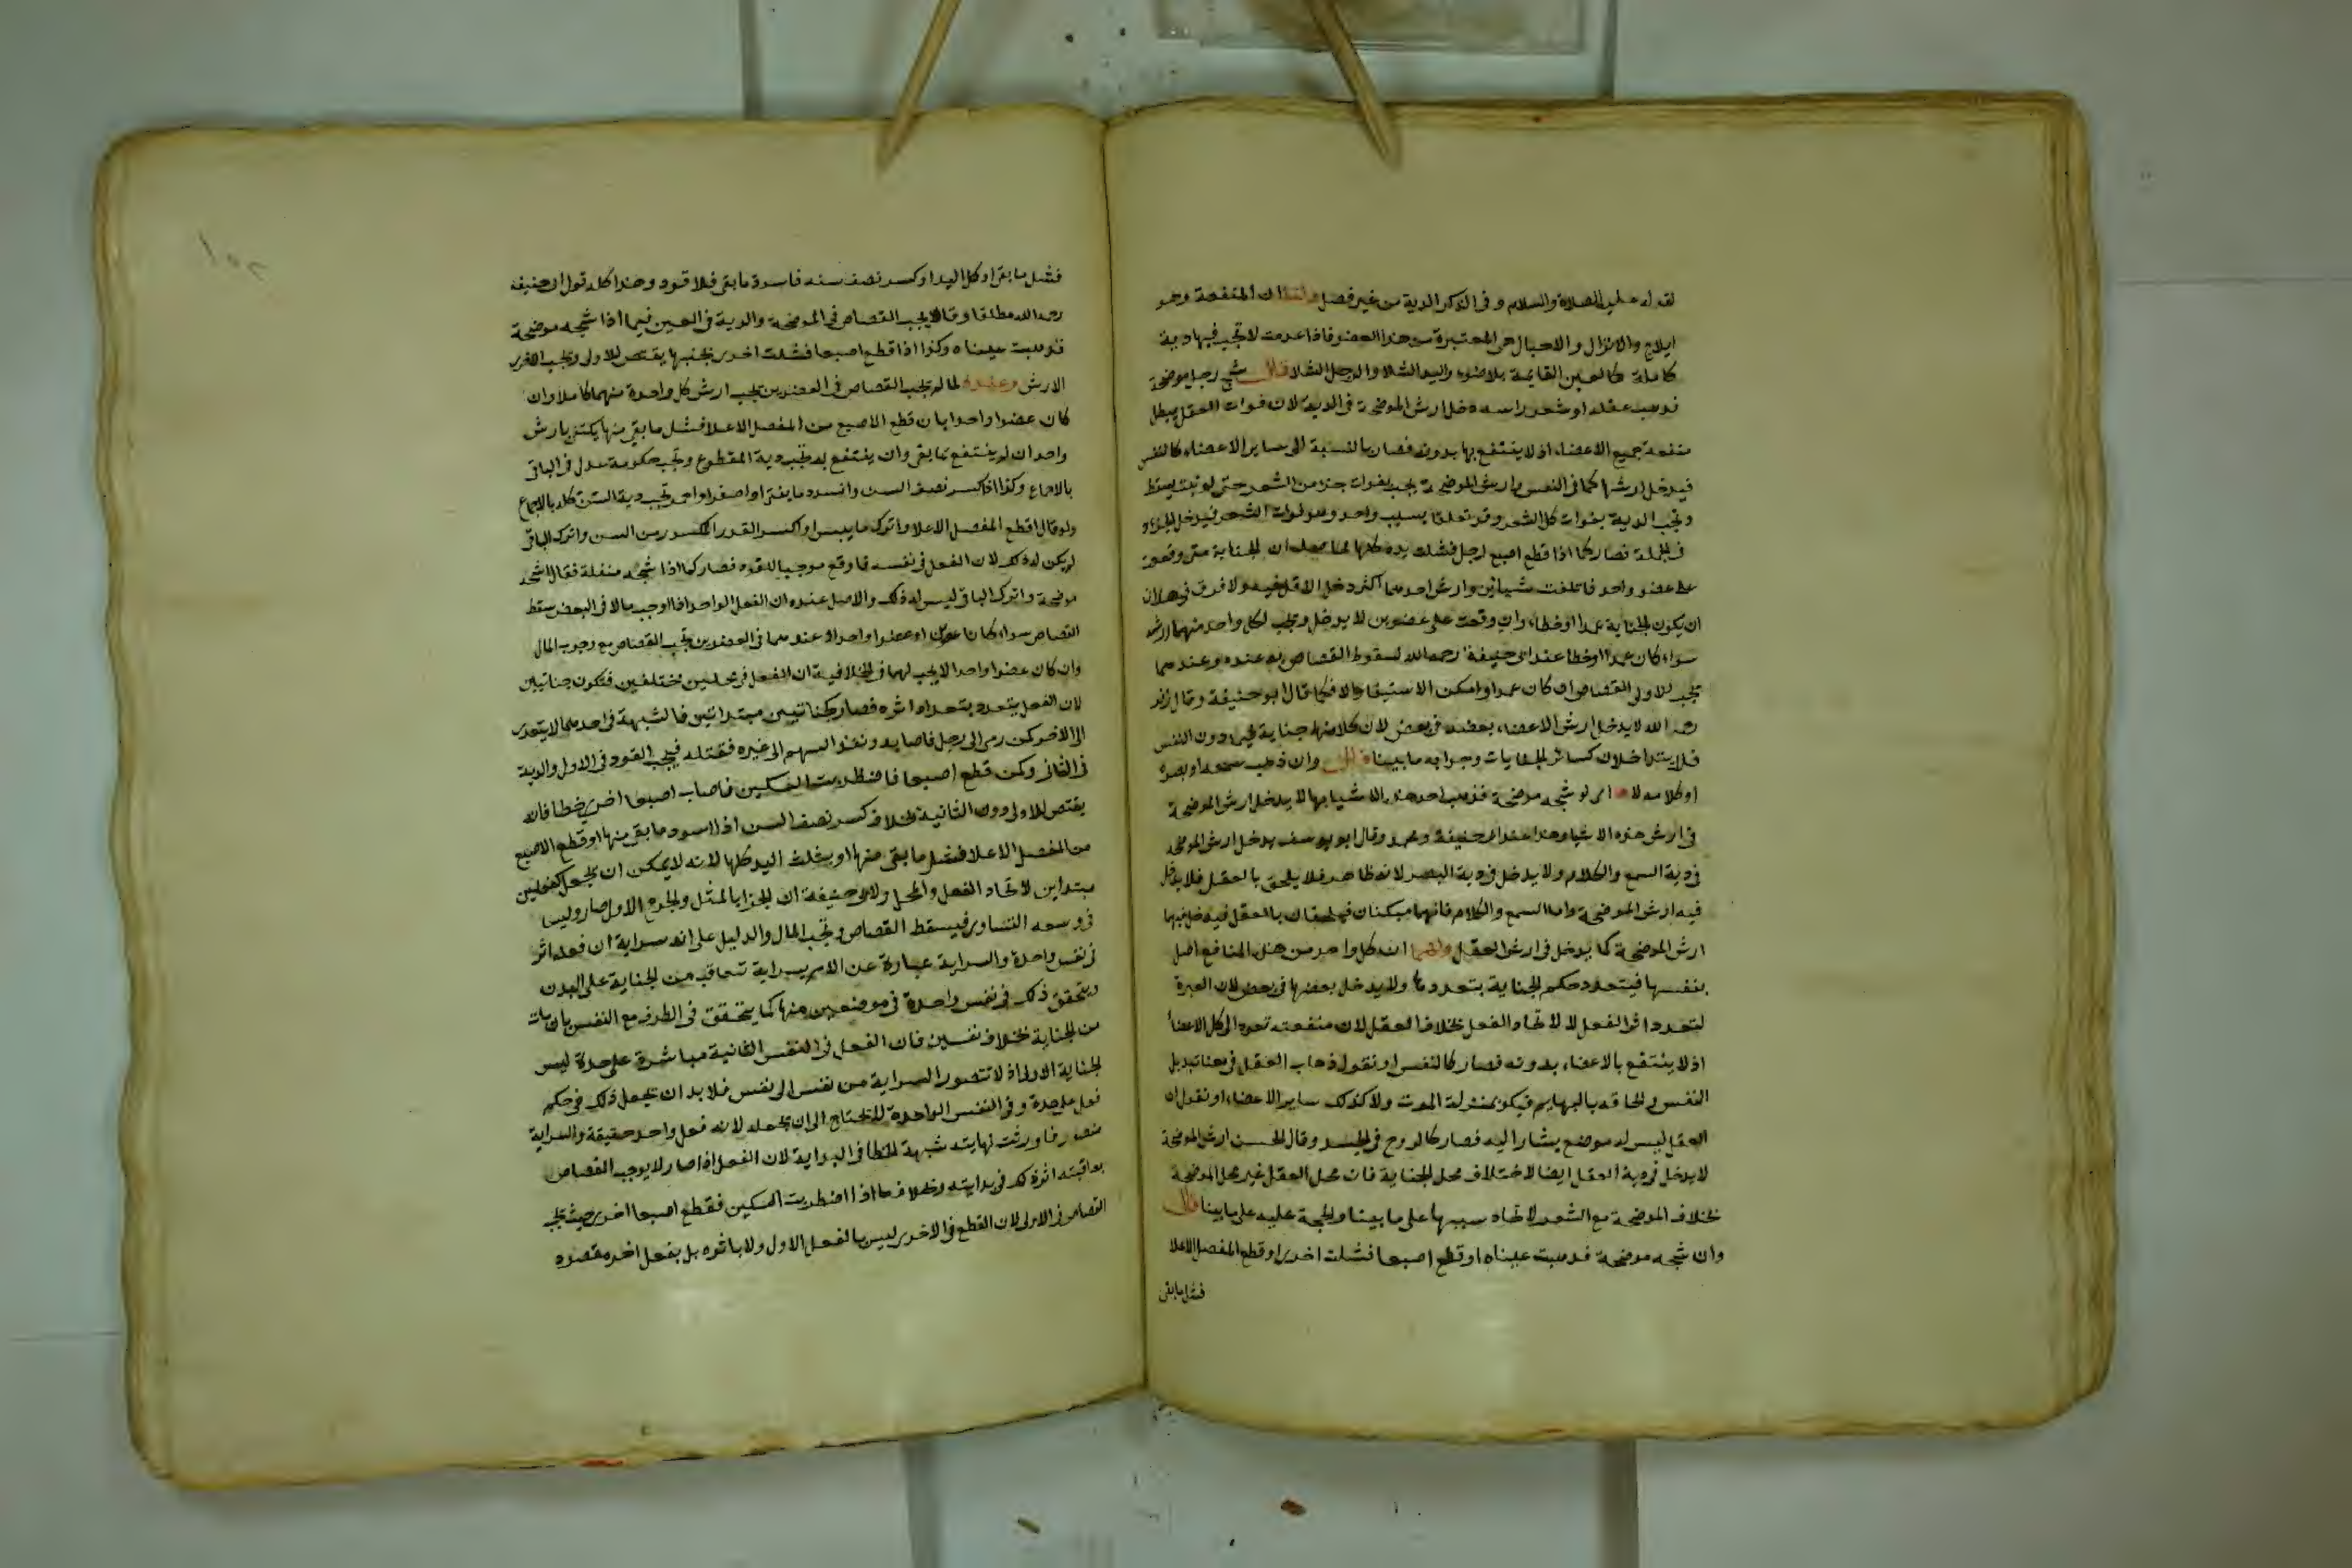 لقوله عليه الصلاة والسلام وفى الذكر الدية من غير فصل ولنا ان المنفعة وهو
ايلاج والانزال والاحبال هى المعتبرة من هذا العضو فاذا عدمت لا تجب فيها دية
كاملة كالعين القايمة بلا ضوء واليد الشلا والرجل الشلا قال شج رجلا موضحة
فذهب عقله او شعر راسه دخل ارش الموضحة فى الدية لان فوات العقل يبطل
منفعة جميع الاعضاء اذ لا ينتفع بها بدونه فصار بالنسبة الى ساير الاعضاء كالنفس
فيدخل ارشها كما فى النفس وارش الموضحة يجب بفوات جزء من الشعر حتى لو نبت يسقط
وتجب الدية بفوات كل الشعر وقد تعلقا بسبب واحد وهو فوات الشعر فيدخل الجزء
فى الجملة فصار كما اذا قطع اصبع رجل فشلت يده كلها ان الجناية متى وقعت
على عضو واحد فاتلفت شيئين وارش احدهما اكثر دخل الاقل فيه ولا فرق فى هذا ان
ان يكون الجناية عمدا او خطاء وان وقعت على عضوين لا يدخل وتجب لكل واحد منهما ارشه
سواء كان عمدا او خطا عند ابى حنيفة رحمه الله لسقوط القصاص به عنده وعندهما
تجب للاول القصاص ان كان عمدا وامكن الاستيفا والا فكما قال ابو حنيفة وقال زفر
رحمه الله لا يدخل ارش الاعضاء بعضه فى بعض لان كلا منها جناية فيما دون النفس
فلا يتداخلان كساير الجنايات وجوابه ما بيناه قال وان ذهب سمعه او بصره
او كلامه لا اى لو شجه موضحة فذهب احد هذه الاشياء بها لا يدخل ارش الموضحة
فى ارش هذه الاشياء وهذا عند ابى حنيفة ومحمد وقال ابو يوسف يدخل ارش الموضحه
فى دية السمع والكلام ولا يدخل فى دية البصر لانه ظاهر فلا يلحق بالعقل فلا يدخل
فيه ارش الموضحة واما السمع والكلام فانهما مبطنان فيلحقان بالعقل فيدخل فيهما
ارش الموضحة كما يدخل فى ارش العقل ولهما ان كل واحد من هذه المنافع اصل
بنفسها فيتعدد حكم الجناية بتعددها ولا يدخل بعضها فى بعض لان العبرة
لتعدد اثر الفعل لا لاتحاد الفعل بخلاف العقل لان منفعته تعود الى كل الاعضاء
اذ لا ينتفع بالاعضاء بدونه فصار كالنفس او نقول ذهاب العقل فى معنا تبديل
النفس والحاقه بالبهايم فيكون بمنزلة الموت ولا كذلك ساير الاعضاء او نقول ان
العقل ليس له موضع يشار اليه فصار كالروح فى الجسد وقال الحسن ارش الموضحة
لا يدخل فى دية العقل ايضا لاختلاف محل الجناية فان محل العقل غير محل الموضحة
بخلاف الموضحة مع الشعر لاتحاد سببها على ما بينا والحجة عليه على ما بينا قال
وان شجه موضحة فذهبت عيناه او قطع اصبعا فشلت اخرى او قطع المفصل الاعلا
فشل ما بقى
فشل ما بقى او كل اليد او كسر نصف سنه فاسود ما بقى فلا قود وهذا كله قول ابى حنيفه
رحمه الله مطلقا وقالا يجب القصاص فى الموضحة والدية فى العين فيما اذا شجه موضحة
فذهبت عيناه وكذا اذا قطع اصبعا فشلت اخرى بجنبها يقتص للاول ويجب للاخرى
الارش وعنده لما لم تجب القصاص فى العضوين يجب ارش كل واحدة منهما كاملا وان
كان عضوا واحدا بان قطع الاصبع من المفصل الاعلا فشل ما بقى منها يكتفى بارش
واحد ان لم ينتفع بما بقى وان ينتفع به تجب دية المقطوع وتجب حكومة عدل فى الباقى
بالاجماع وكذا اذا كسر نصف السن واسود ما بقى او اصفر او احمر تجب دية السن كله بالاجماع
ولو قال اقطع المفصل الاعلا واترك ما يبس او اكسر القدر المكسور من السن واترك الباقى
لم يكن له ذلك لان الفعل فى نفسه ما وقع موجبا للقود فصار كما اذا شجه منقلة فقال اشجه
موضحة واترك الباقى ليس له ذلك والاصل عنده ان الفعل الواحد اذا اوجب مالا فى البعض سقط
القصاص سواء كانا عضوين او عضوا واحدا وعندهما فى العضوين تجب القصاص مع وجوب المال
وان كان عضوا واحدا لا يجب لهما فى الخلافية ان الفعل فى محلين مختلفين فتكون جنايتين
لان الفعل يتعدد بتعدد اثره فصار كجنايتين مبتداتين فالشبهة فى احدهما لا يتعدى
الى الاخر كمن رمى الى رجل فاصابه ونفذ السهم الى غيره فقتله فيجب القود فى الاول والدية
فى الثانى وكمن قطع اصبعا فاضطربت السكين فاصاب اصبعا اخرى خطا فانه
يقتص للاولى دون الثانية بخلاف كسر نصف السن اذا اسود ما بقى منها او قطع الاصبع
من المفصل الاعلا فشل ما بقى منها او شلت اليد كلها لانه لا يمكن ان يجعل كفعلين
مبتداين لاتحاد الفعل والمحل ولابى حنيفة ان الجزا بالمثل والجرح الاول سار وليس
فى وسعه التساوى فيسقط القصاص وتجب المال والدليل على انه سراية ان فعله اثر
فى نفس واحدة والسراية عبارة عن الام تتعاقب من الجناية على البدن
ويتحقق ذلك فى نفس واحدة فى موضعين منها كما يتحقق فى الطرف مع النفس بان مات
من الجناية بخلاف نفسين فان الفعل فى النفس الثانية مباشرة على حدة ليس
لجناية الاولى اذ لا تتصور السراية من نفس الى نفس فلا بد ان يجعل ذلك فى حكم
فعل على حدة وفى النفس الواحدة لا يحتاج الى ان يجعله لانه فعل واحد حقيقة والسراية
ورثت نهايته شبهة الخطا فى البداية لان الفعل اذا صار لا يوجب القصاص
بعاقبته اثر ذلك فى بدايته وبخلاف ما اذا اضطربت السكين فقطع اصبعا اخرى حيث يجب
القصاص فى الاولى لان القطع فى الاخرى ليس بالفعل الاول ولا باثره بل بفعل اخر مقصود